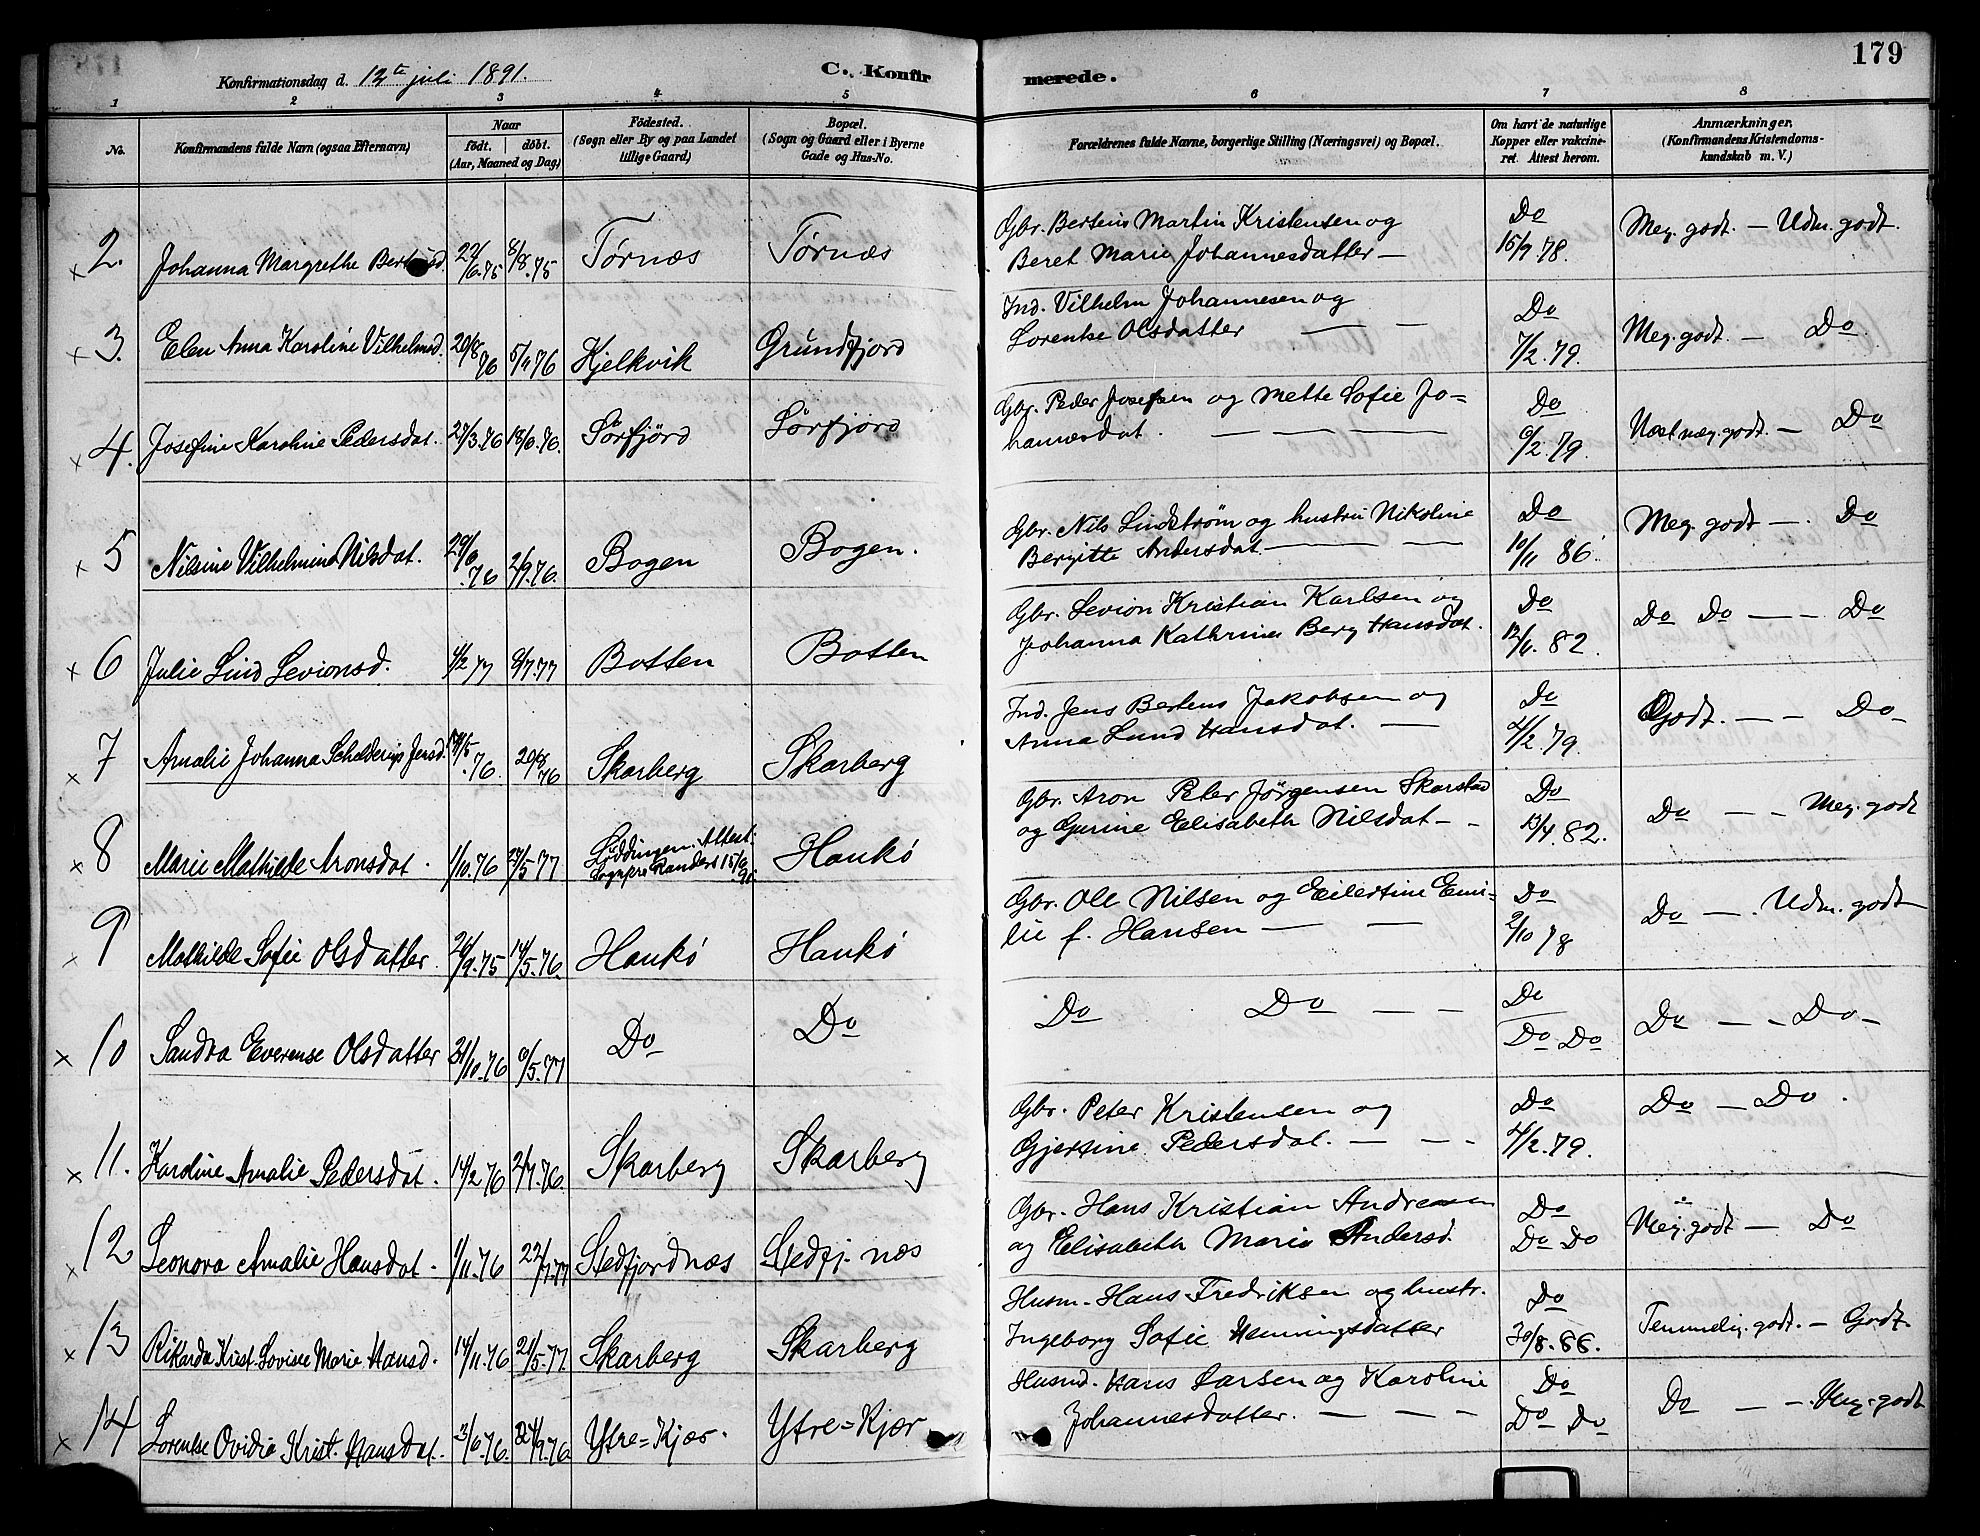 179
Konfirmationsdag d. 12te juli 1891.
C. Konfirmerede.
1 2 3 4 5 6 7 8
No.
Konfirmandens fulde Navn (ogsaa Efternavn)
Naar
født. døbt.
(Aar, Maaned og Dag)
Födested.
(Sogn eller By og paa Landet
tillige Gaard)
Bopæl.
(Sogn og Gaard eller i Byerne
Gade og Hus-No.
Forældrenes fulde Navne, borgerlige Stilling (Næringsvei) og Bopæl.
Om havt de naturlige
Kopper eller vakcine-
ret. Attest herom.
Anmærkninger.
(Konfirmandens Kristendoms-
kundskab m. V.)
x 2. Johanna Margrethe 22/6.75 8/8.75 Tørnæs Tørnæs
Gbr. Bertius Martin Kristensen og
Beret Marie Johannesdatter —
Do
15/9 78.
Meg. godt. — Udm. godt.
x 3. Elen Anna Karoline Vilhelmsd. 76 76 Kjelkvik Grundfjord
Ind. Vilhelm Johannesen og
Lorentse Olsdatter — —
Do
7/2. 79.
Meg. godt. — Do
x 4. Josefine Karoline Pedersdat. 27/3.76 76. Sørfjörd Sørfjord
Gbr. Peder Josefsen og Mette Sofie Jo=
hannesdat. — — —
Do
6/2. 79.
Næst meg. godt. — Do
x 5 Nilsine Vilhelmine Nilsdat. 76 2/9.76. Bogen Bogen.
Gbr. Nils Lindstrøm og hustru Nikoline
Bergitte Andersdat. — —
Do
10/11 86.
Meg. godt —. Do
x 6 Julie Lind Levionsd. 77 77 Botten Botten
Gbr. Levion Kristian Karlsen og
Johanna Kathrine Berg Hansdat.
Do
82.
Do Do — — Do
x 7 Amalie Johanna Schelderup Jensd. 76. 76 Skarberg Skarberg
Ind. Jens Bertens Jakobsen og
Anna Lund Hansdat. —
Do
4/2. 79.
Godt. — — Do —
x 8 Marie Mathilde Aronsdat. 1/10.76 27/5.77 Löddingen. Attest: Hankó
Gbr. Aron Peter Jörgensen Skarstad
og Gurine Elisabeth Nilsdat — —
Do
13/4. 82.
Do — — Meg. godt
x 9 Mathilde Sofie Olsdatter 26/9.75 14/5.76. Hankó Hankó
Gbr. Ole Nilsen og Eilertine Emi=
lie f. Hansen — —
Do
2/10 78
Do —. Udm. godt
x 10 Sandra Everense Olsdatter 31/10.76 6/5.77 Do Do
Do Do — —
Do
Do Do
Do — — Do —
x 11. Karoline Amalie Pedersdat. 14/2 76 2/7.76. Skarberg Skarberg
Gbr. Peter Kristensen og
Gjertine Pedersdat. — — -
Do
4/2. 79.
Do — Do.
x 12 Leonora Amalie Hansdat. /11.76 77 Stedfjordnæs Stedfj. næs
Gbr. Hans Kristian Andreasen
og Elisabeth Marie Andersd.
Do
Do Do
Meg. godt — Do
x 13 Rikarda Krist. Lovise Marie Hansd. 14/11.76 21/5.77 Skarberg Skarberg
Husm. Hans Fredriksen og hustr.
Ingeborg Sofie Henningsdatter
Do
30/8. 86.
Temmelig godt. — Godt.
x 14 Lorentse Ovidia Krist. Hansdat. 3/6.76. 24/9.76 Ytre=Kjær. Ytre=Kjær
Husmd. Hans Larsen og Karoline
Johannesdatter. — — -
Do
Do Do
Do — —. Meg. godt